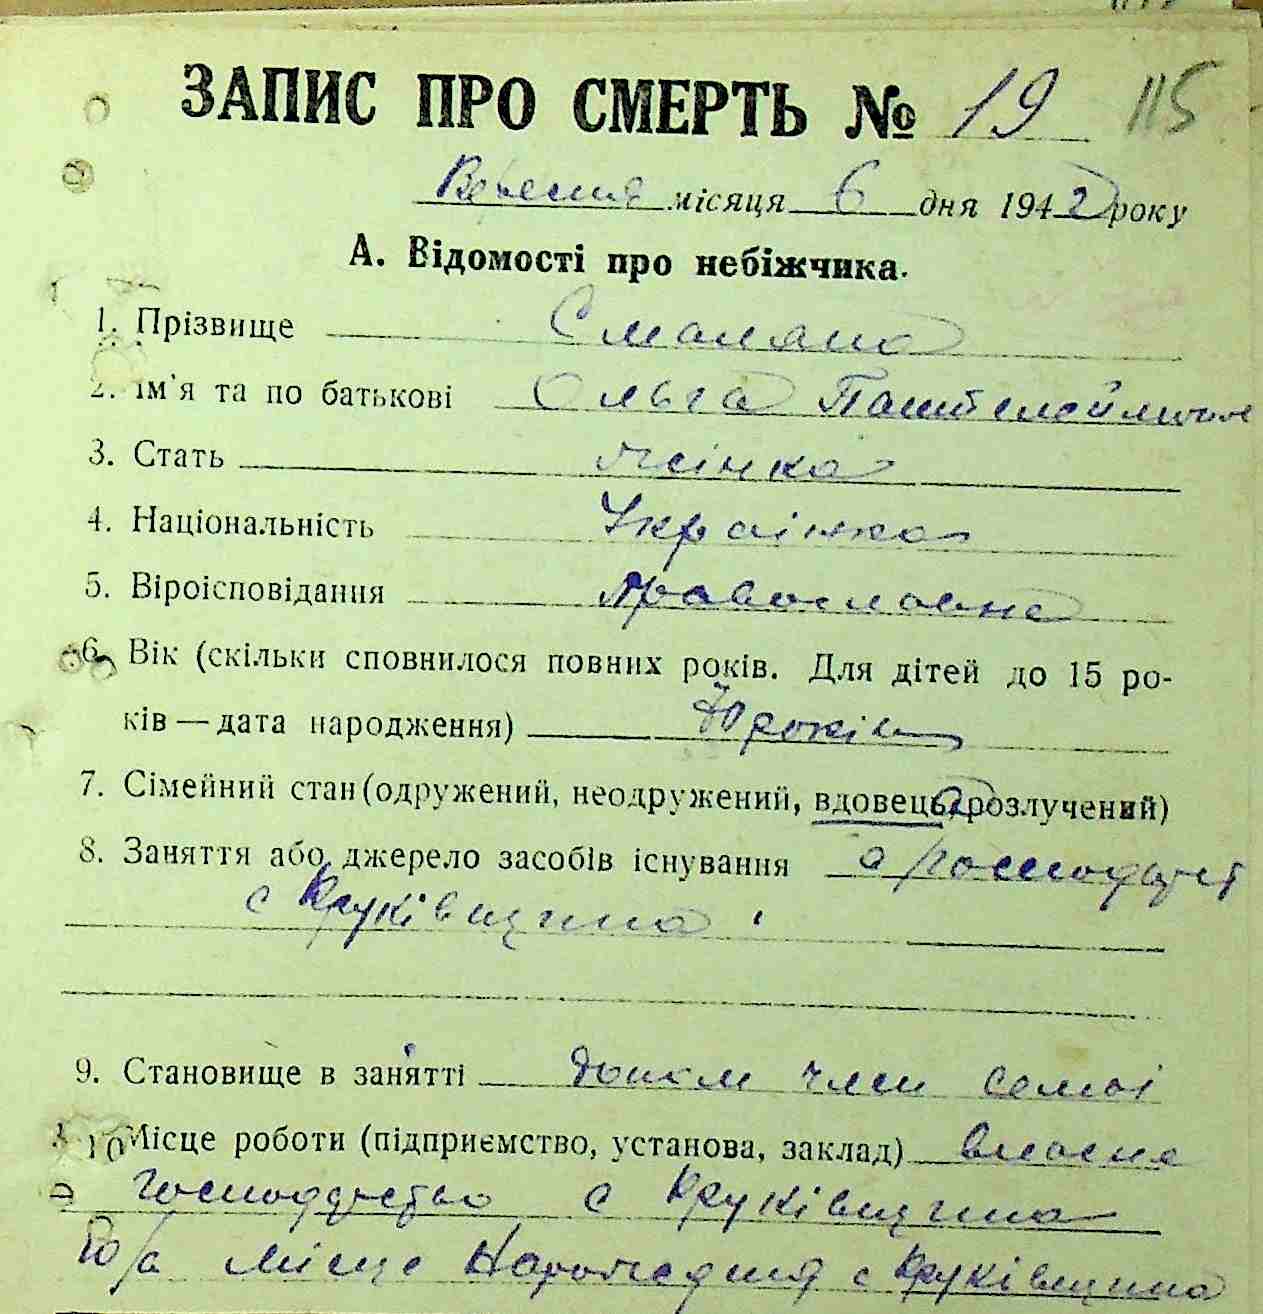 ЗАПИС ПРО СМЕРТЬ № 19 115
Вересня місяця 6 дня 1942 року
А. Відомості про небіжчика.
1. Прізвище
2. Ім'я та по батькові Ольга
3. Стать жінка
4. Національність Українка
5. Віроісповідання православне
6. Вік (скільки сповнилося повних років. Для дітей до 15 ро-
ків — дата народження) років
7. Сімейний стан (одружений, неодружений, вдовець, розлучений)
8. Заняття або джерело засобів існування
с Круківщина
9. Становище в занятті член семьі
10 Місце роботи (підприємство, установа, заклад) власне
господарство с Круківщина
10/а місце народження с Круківщина